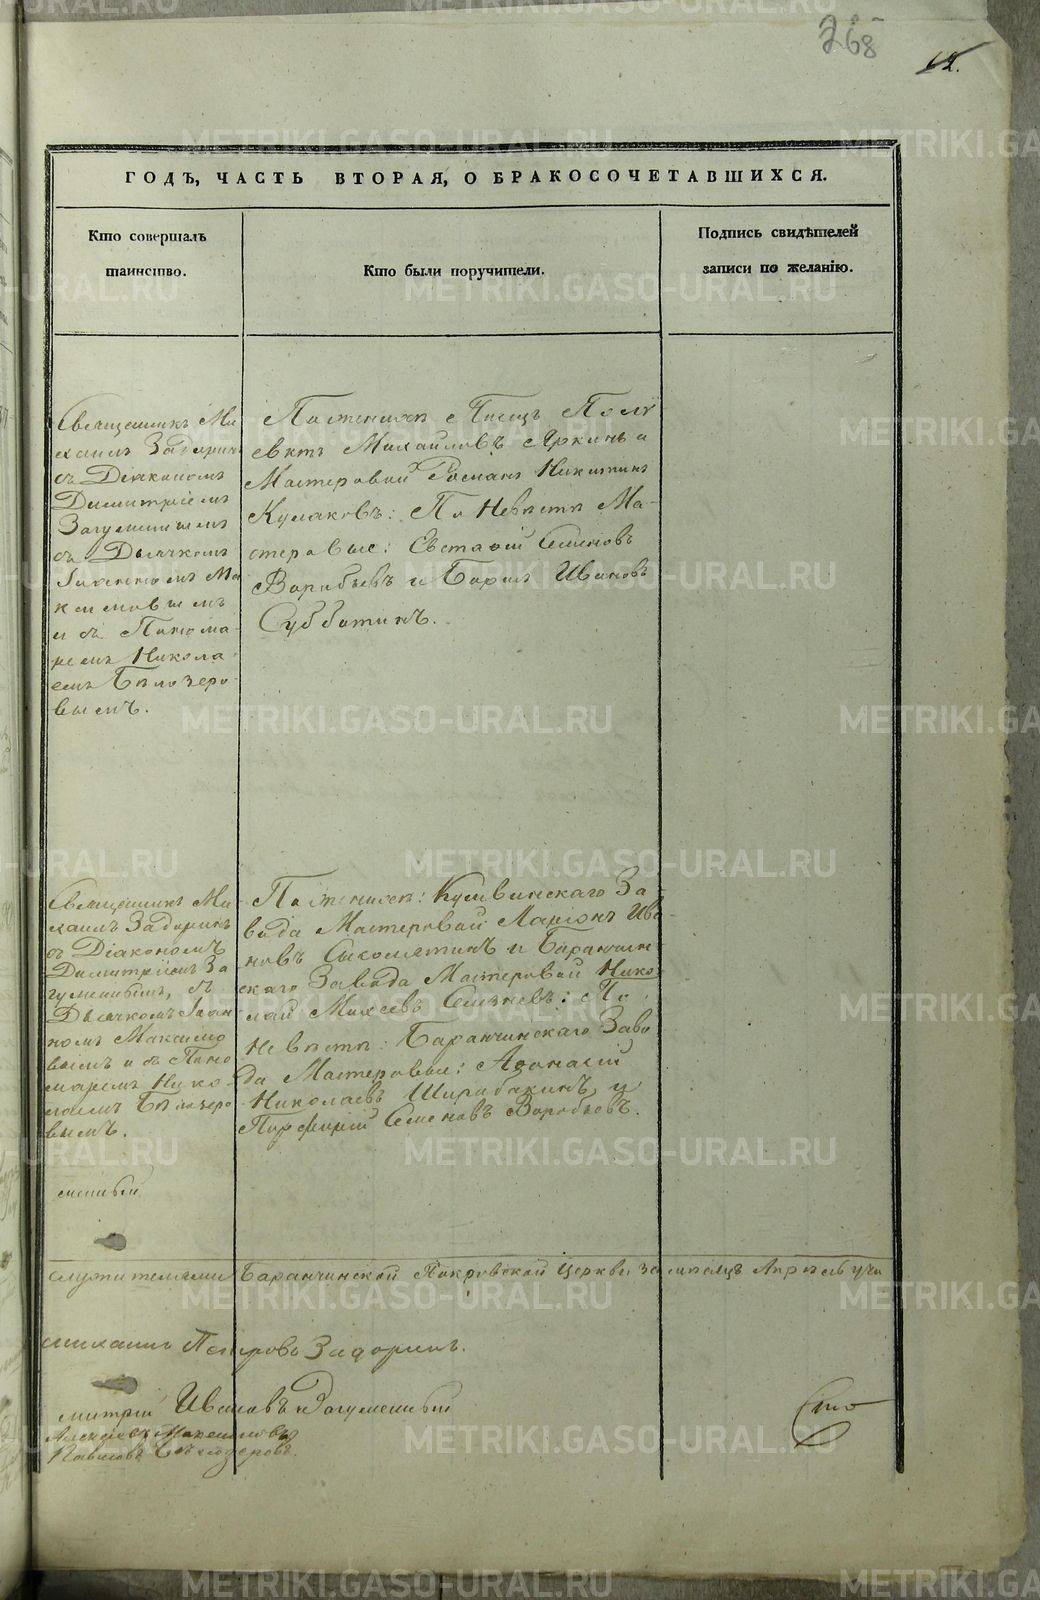 268
62.
ГОДѢ, ЧАСТЬ ВТОРАЯ, О БРАКОСОЧЕТАВШИХСЯ.
Кто совершалъ
таинство.
Кто были поручители.
Подпись свидѣтелей
записи по желанію.
Священникъ Ми
хаилъ Задоринъ
съ Діакономъ
Димитріемъ
Загуменнымъ
съ Дьячкомъ
Іоанномъ Ма
ксимовымъ
и съ Понома-
ремъ Никола
емъ Бѣлозеро-
вымъ.
По женихѣ: Писецъ Полу
евктъ Михайловъ Яркинъ и
Мастеровой Романъ Никитинъ
Кулаковъ: По Невѣстѣ Ма-
стеровые: Евстафій Семеновъ
Воробьевъ и Борисъ Ивановъ
Субботинъ.
Священникъ Ми-
хаилъ Задоринъ
съ Діакономъ
Димитріемъ За
гуменнымъ, съ
Дьячкомъ Іоан
номъ Максимо
вымъ и съ Поно
маремъ Нико-
лаемъ Бѣлозеро
вымъ.
По женихѣ: Кушвинскаго За-
вода Мастеровой Ларіонъ Ива-
новъ и Баранчин-
скаго Завода Мастеровой Нико-
лай Михеевъ Селзневъ: По
Невѣстѣ: Баранчинскаго Заво
да Мастеровые: Афонасій
Николаевъ Ширабакинъ и
Порфирій Семеновъ Воробьевъ.
менный
служителями Баранчинской Покровской Церкви за мѣсяцъ Апрѣль учи
Михаилъ Петровъ Задоринъ.
митрій Ивановъ Загуменный
Алексѣевъ Максимовъ
Павловъ Бѣлозеровъ.
METRIKI.GASO-URAL.RU